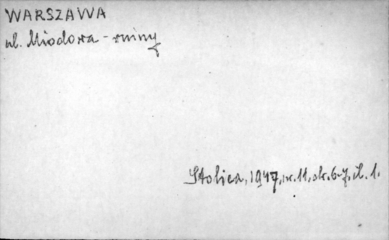 WARSZAWA
ul. Miodowa - ruiny
Stolica, 1947, nr. 11, str. 6-7, il. 1.